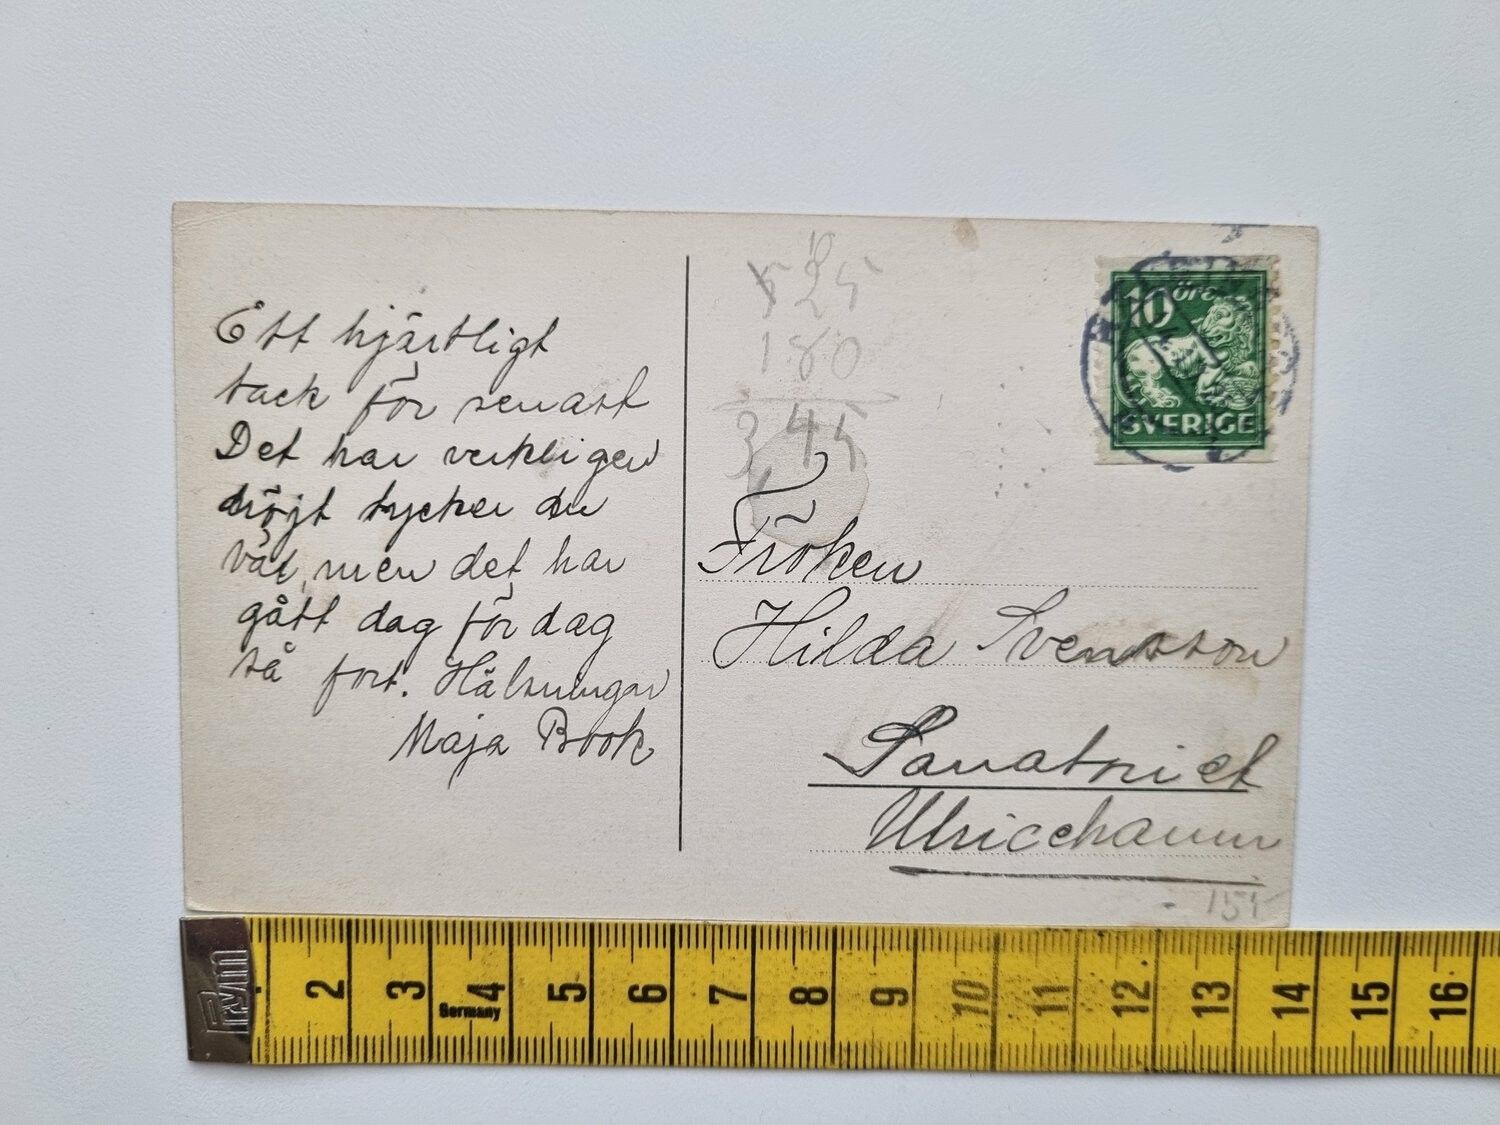 Ett hjärtligt
tack för senast
Det har verkligen
dröjt tycker du
väl, men det har
gått dag för dag
så fort. Hälsningar
Maja Book
525
180
3,45
10 ÖRE
SVERIGE
Fröken
Hilda Svensson
Sanatoriet
Ulricehamn
151
Prym
2 3 4 5 6 7 8 9 10 11 12 13 14 15 16
Germany